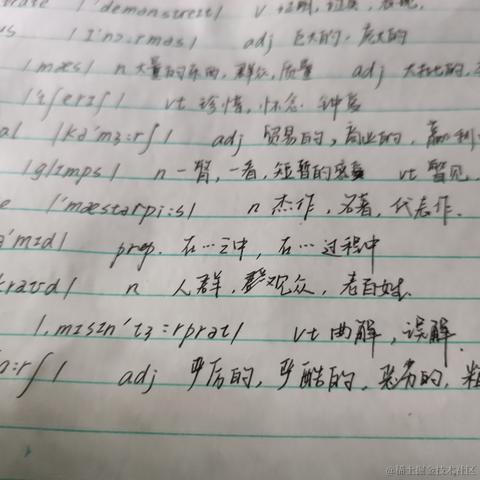 /'demənstreit/ v
/I'nɔ:rməs/ adj 巨大的,庞大的
/mæs/ n 大量的东西,群众,质量 adj
/'tʃeriʃ/ vt 珍惜,怀念,钟爱
al /kə'mɜ:rʃ/ adj 贸易的,商业的,
/glimps/ n 一瞥,一看,短暂的感受 vt 瞥见
e /'mæstərpi:s/ n 杰作,名著,代表作.
ə'mid/ prep. 在…之中,在…过程中
kraud/ n 人群,观众,老百姓.
/.misin'tɜ:rprət/ vt 曲解,误解.
ɔ:rʃ/ adj 严厉的,严酷的,恶劣的,粗
@稀土掘金技术社区